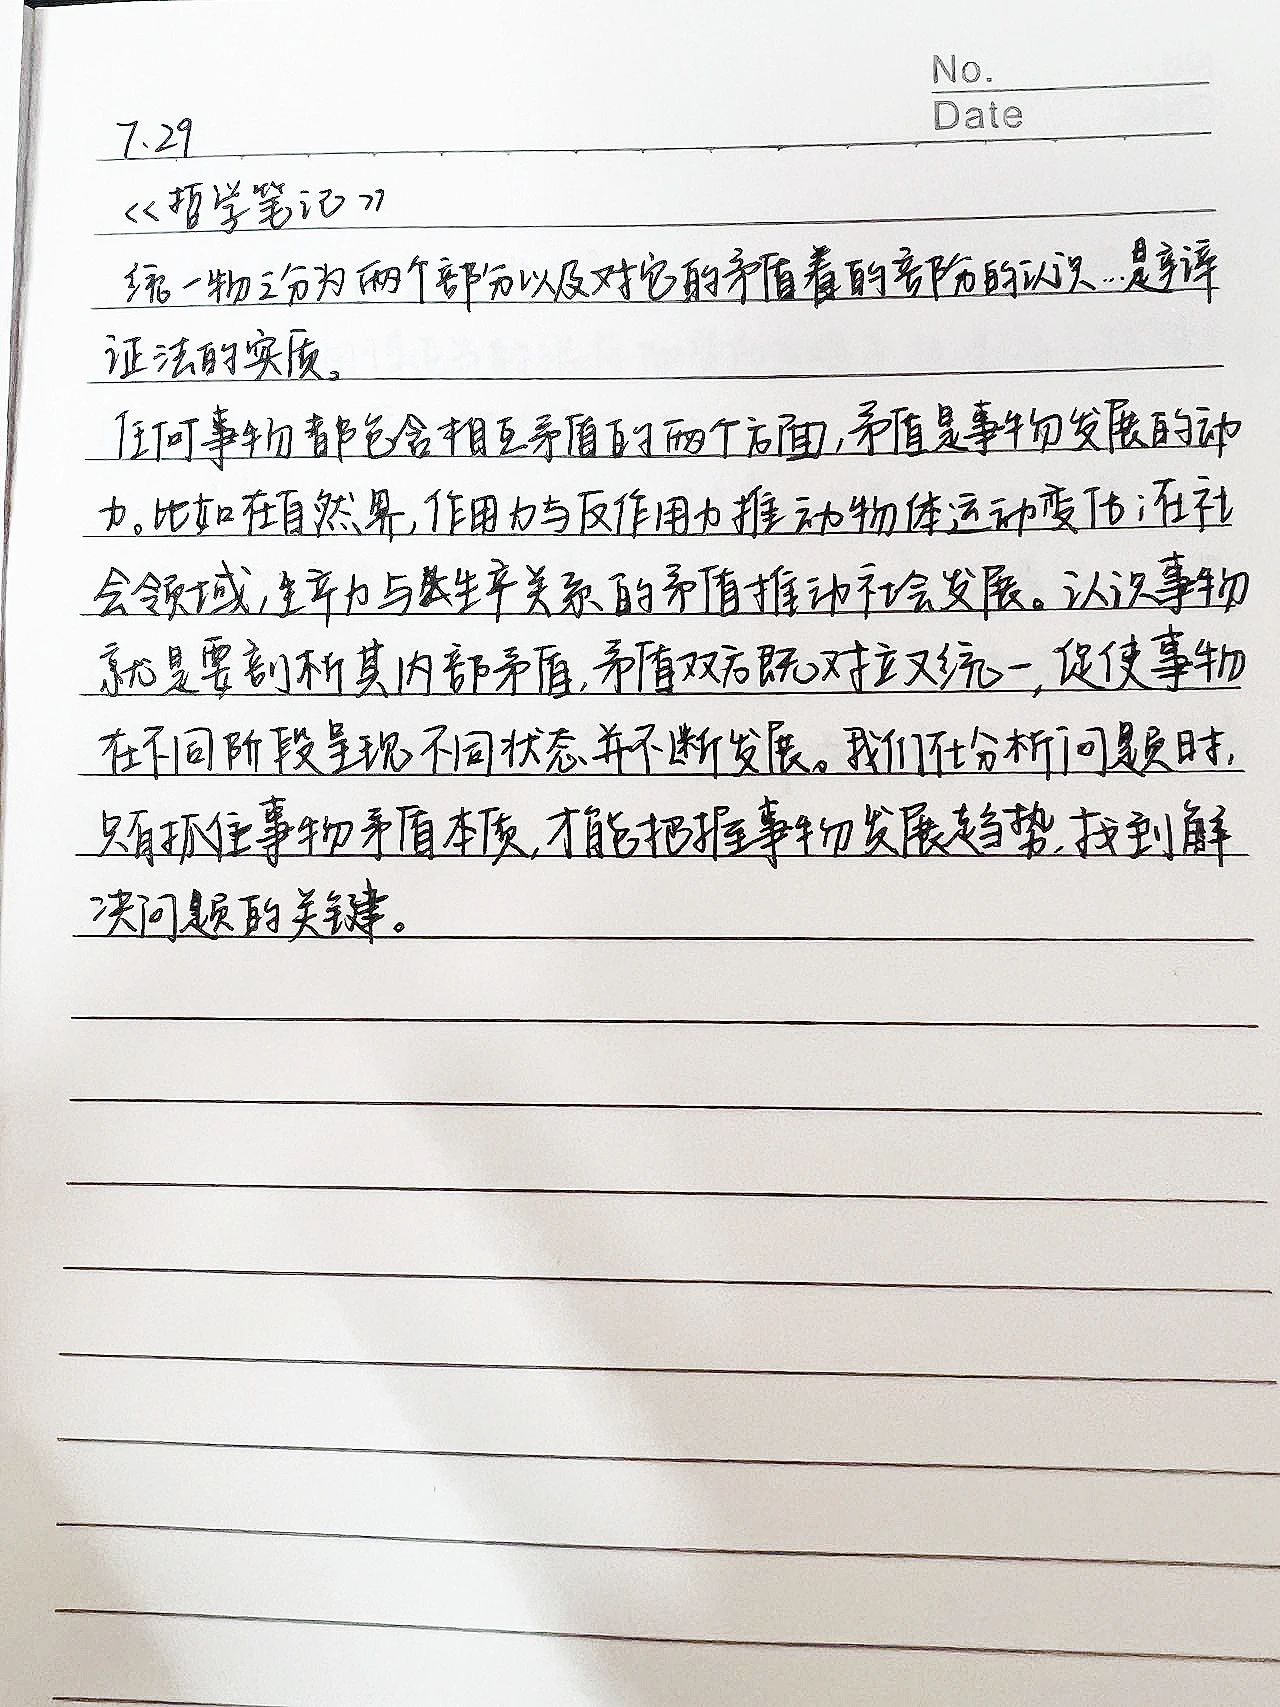 No.
Date
7.29
《哲学笔记》
统一物之分为两个部分以及对它的矛盾着的部分的认识…是辩
证法的实质。
任何事物都包含相互矛盾的两个方面,矛盾是事物发展的动
力。比如在自然界,作用力与反作用力推动物体运动变化;在社
会领域,生产力与生产关系的矛盾推动社会发展。认识事物
就是要剖析其内部矛盾,矛盾双方既对立又统一,促使事物
在不同阶段呈现不同状态并不断发展。我们在分析问题时,
只有抓住事物矛盾本质,才能把握事物发展趋势,找到解
决问题的关键。